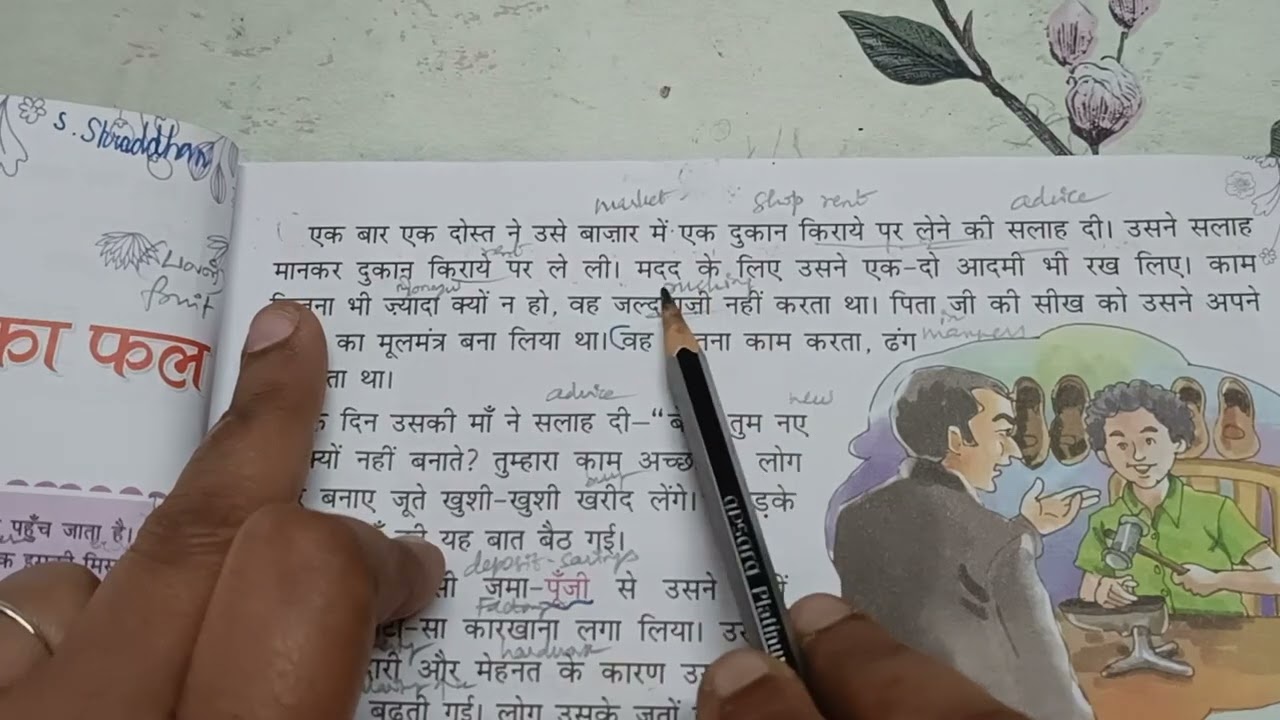 S. Shraddhan
का फल
पहुँच जाता है।
market shop rent advice
एक बार एक दोस्त ने उसे बाज़ार में एक दुकान किराये पर लेने की सलाह दी। उसने सलाह
rent
मानकर दुकान किराये पर ले ली। मदद के लिए उसने एक-दो आदमी भी रख लिए। काम
भी ज़्यादा क्यों न हो, वह नहीं करता था। पिता जी की सीख को उसने अपने
का मूलमंत्र बना लिया था। वह काम करता, ढंग manners
था।
advice new
दिन उसकी माँ ने सलाह दी–“ तुम नए
क्यों नहीं बनाते? तुम्हारा काम लोग
buy
बनाए जूते खुशी-खुशी खरीद लेंगे।
यह बात बैठ गई।
deposit-savings
जमा-पूँजी से उसने
Factory
कारखाना लगा लिया।
और मेहनत के कारण
बढ़ती गई। लोग उसके जूतों
apsara Platinum